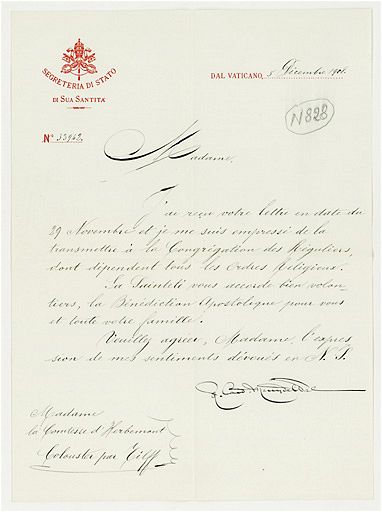 SEGRETERIA DI STATO
DI SUA SANTITÀ
DAL VATICANO, 5 Décembre 1901.
Nº 33962.
N823
Madame,
J'ai reçu votre lettre en date du
29 Novembre et je me suis empressé de la
transmettre à la Congrégation des Réguliers,
dont dépendent tous les Ordres Religieux.
Sa Sainteté vous accorde bien volon-
tiers, la Bénédiction Apostolique pour vous
et toute votre famille.
Veuillez agréer, Madame, l'expres
sion de mes sentiments dévoués en N. S.
Madame
la Comtesse d'Herbemont
par Tilff